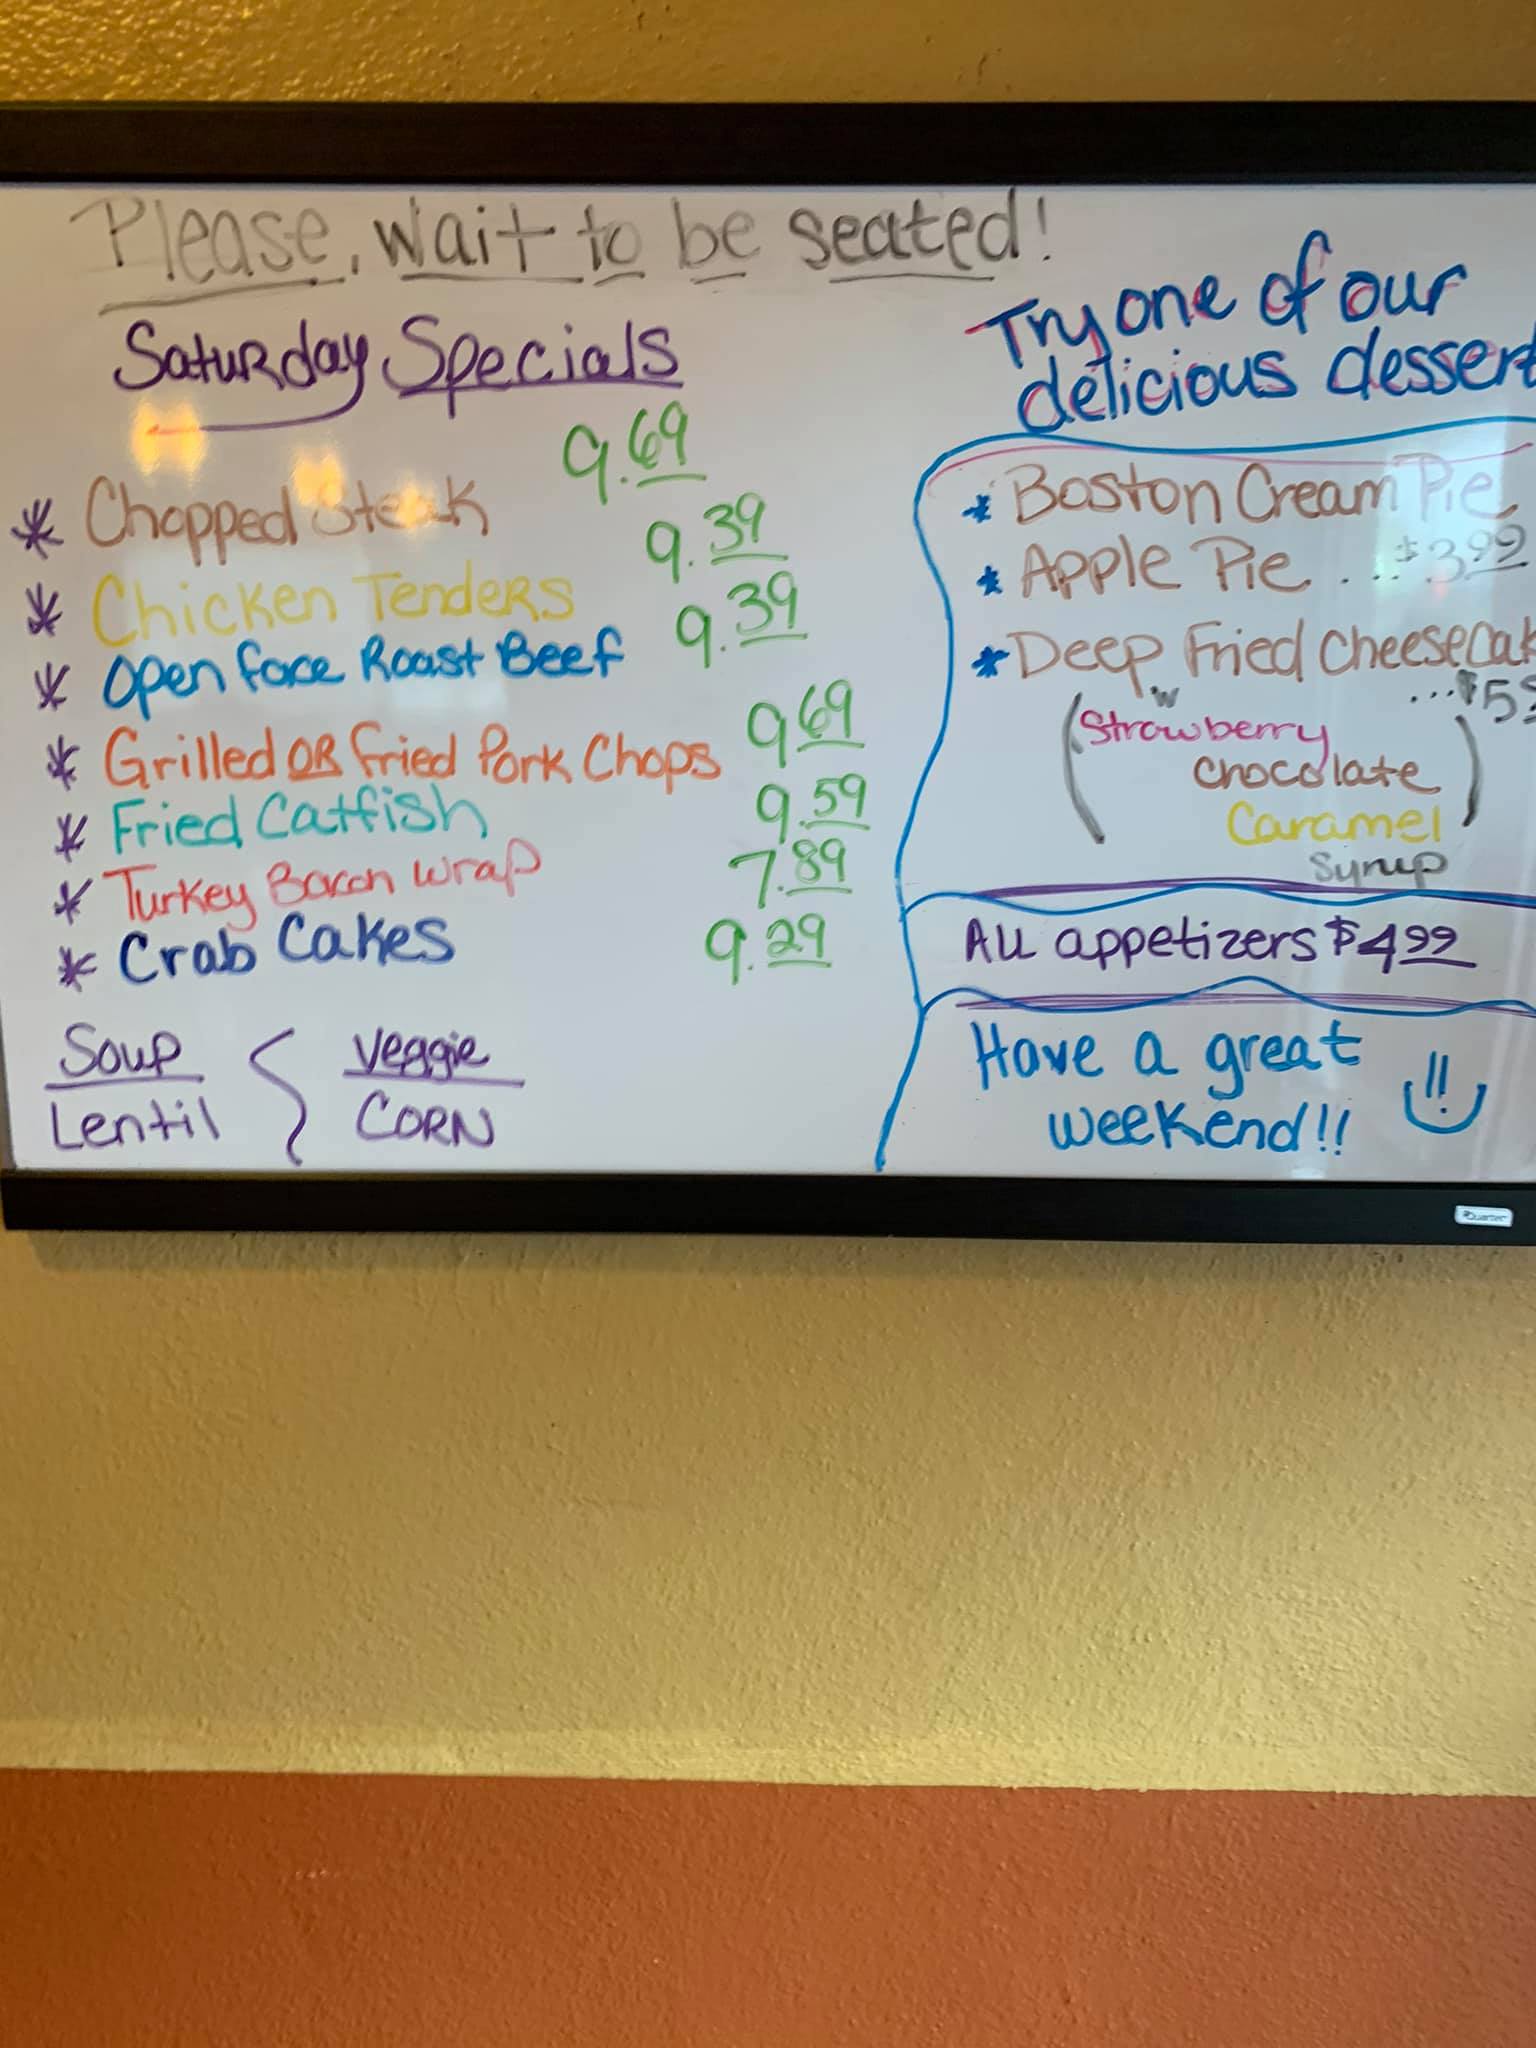 Please, wait to be seated!
Saturday Specials
* Chopped Steak 9.69
* Chicken Tenders 9.39
* Open face Roast Beef 9.39
* Grilled OR Fried Pork Chops 9.69
* Fried Catfish 9.59
* Turkey Bacon Wrap 7.89
* Crab Cakes 9.29
Soup
Lentil
Veggie
CORN
Try one of our
delicious dessert
* Boston Cream Pie
* Apple Pie ...$3.99
* Deep Fried Cheesecak
...$5
(w Strawberry
Chocolate
Caramel
Syrup)
All appetizers $4.99
Have a great
weekend!!
Quartet